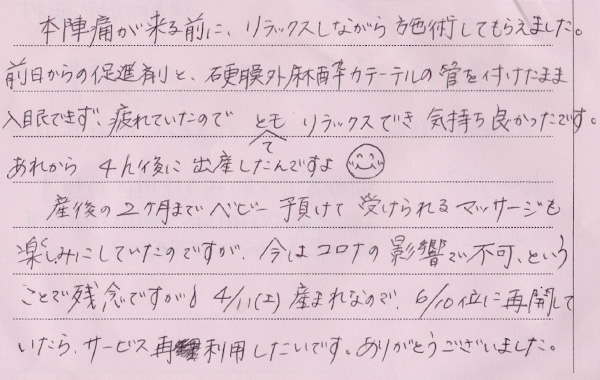 本陣痛が来る前に、リラックスしながら施術してもらえました。
前日からの促進剤と、硬膜外麻酔カテーテルの管を付けたまま
入眠できず、疲れていたので とても リラックスでき 気持ち良かったです。
あれから 4h後に 出産したんですよ
産後の2ヶ月までベビー預けて 受けられるマッサージも
楽しみにしていたのですが、今はコロナの影響で不可、という
ことで残念ですが! 4/11(土)産まれなので、6/10位に再開して
いたら、サービス再利用したいです。ありがとうございました。